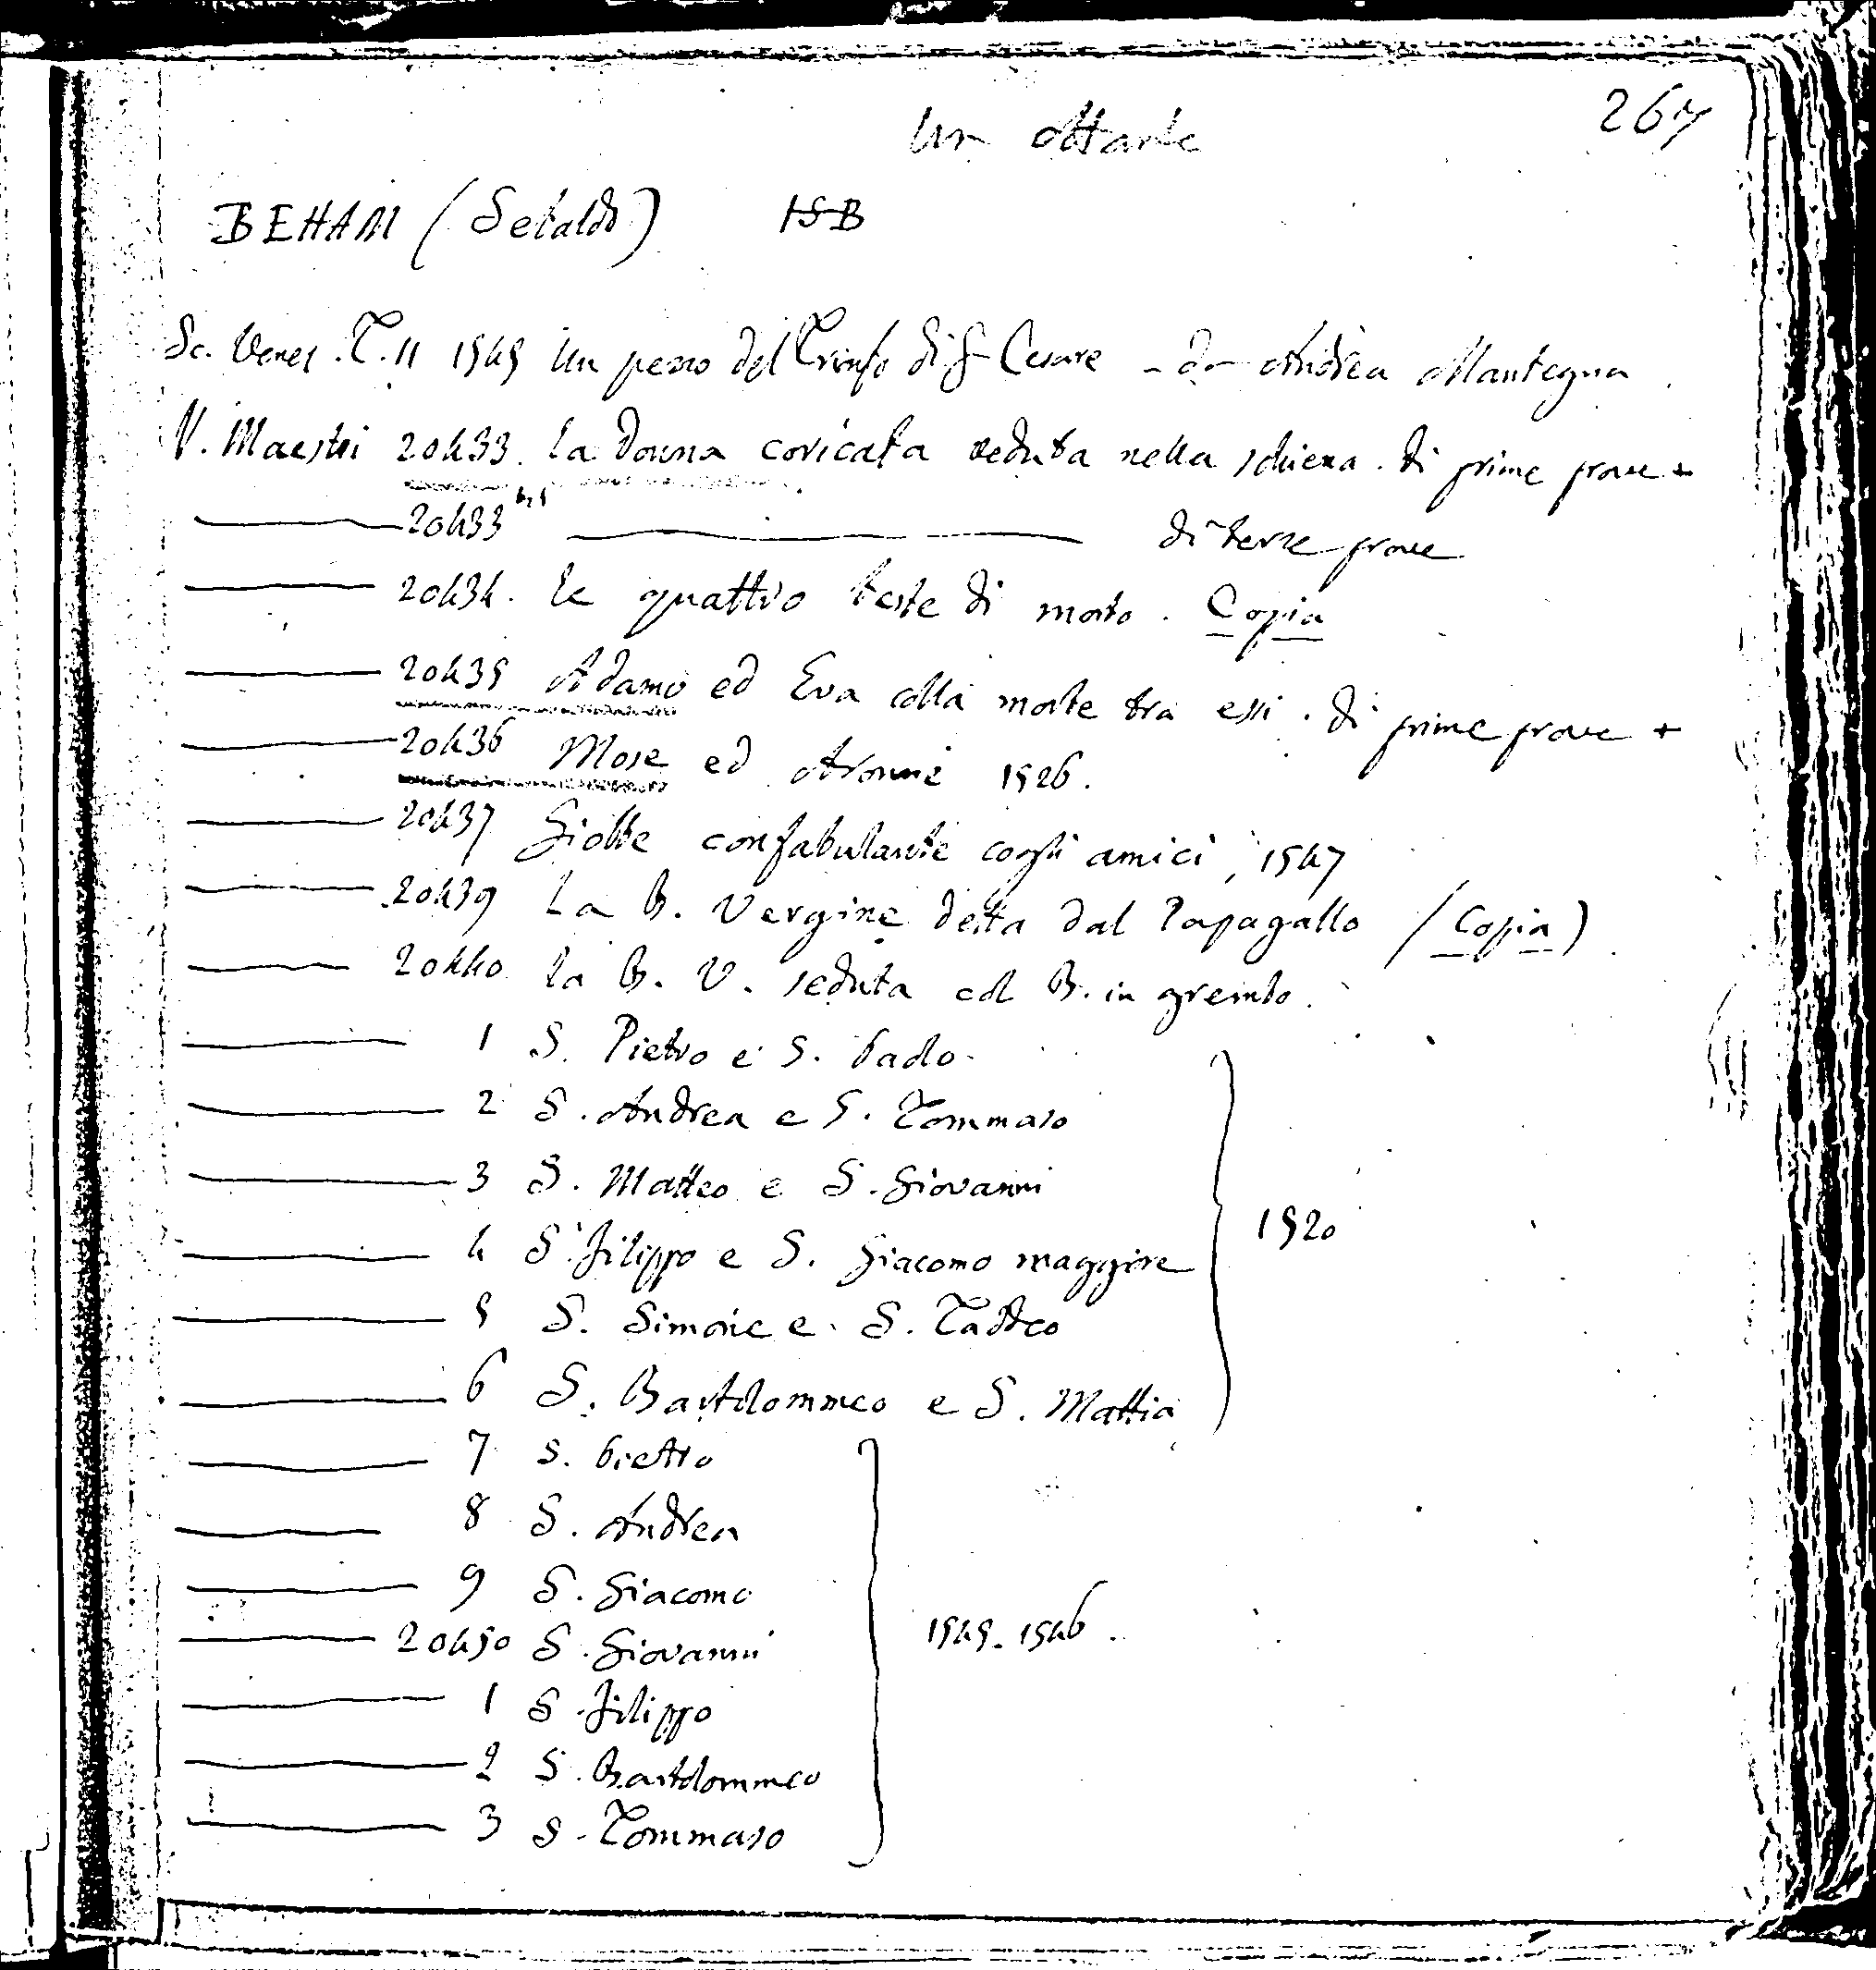 267
BEHAM (Sebaldo) HSB
Sc. Venez. T. 11 1545 Un pezzo del Trionfo di G Cesare - da Andrea Mantegna
V. Maestri 20433. La Donna coricata veduta nella schiena. di prime prove +
20433 bis di terze prove
20434. le quattro teste di morto. Copia
20435 Adamo ed Eva colla morte tra essi. di prime prove +
20436 Mose ed Aronne 1526.
20437 Giobbe confabulante cogli amici, 1547
20439 La B. Vergine detta dal Papagallo (Copia)
20440 la B. V. seduta col B. in grembo.
1 S. Pietro e S. Paolo
2 S. Andrea e S. Tommaso
3 S. Matteo e S. Giovanni
4 S. Filippo e S. Giacomo maggiore 1520
5 S. Simone e S. Tadeo
6 S. Bartolommeo e S. Mattia
7 S. Pietro
8 S. Andrea
9 S. Giacomo
20450 S. Giovanni 1545-1546.
1 S. Filippo
2 S. Bartolommeo
3 S. Tommaso